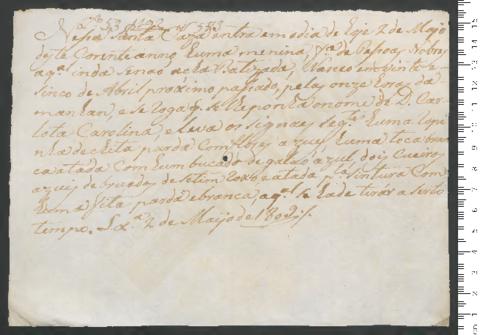 Nesta Santa Caza entra em o dia de Oje 2 de Majo
deste Corente anno huma menina, fª de Pesoas Nobres
a qª inda senão acha Batizada, Nasceo em vinte e
sinco de Abril proximo pasado, pelas onze Oras da
manhan, e se roga q. se lhe ponha o nome de D. Car-
lota Carolina, e leva os signaes segtes huma
de chita parda Com flores azues, huma toca bran-
ca atada Com hum bucado de galaxo azul, dois Cueiros
azues debruados de setim roxo e atada pla sintura Com
huma fita parda e branca, a qal se hade tirar a serto
tempo. Lxa 2 de Maijo de 1802